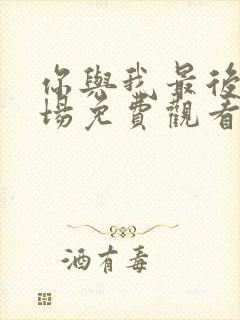 你與我最後
場免費觀看
酒有毒